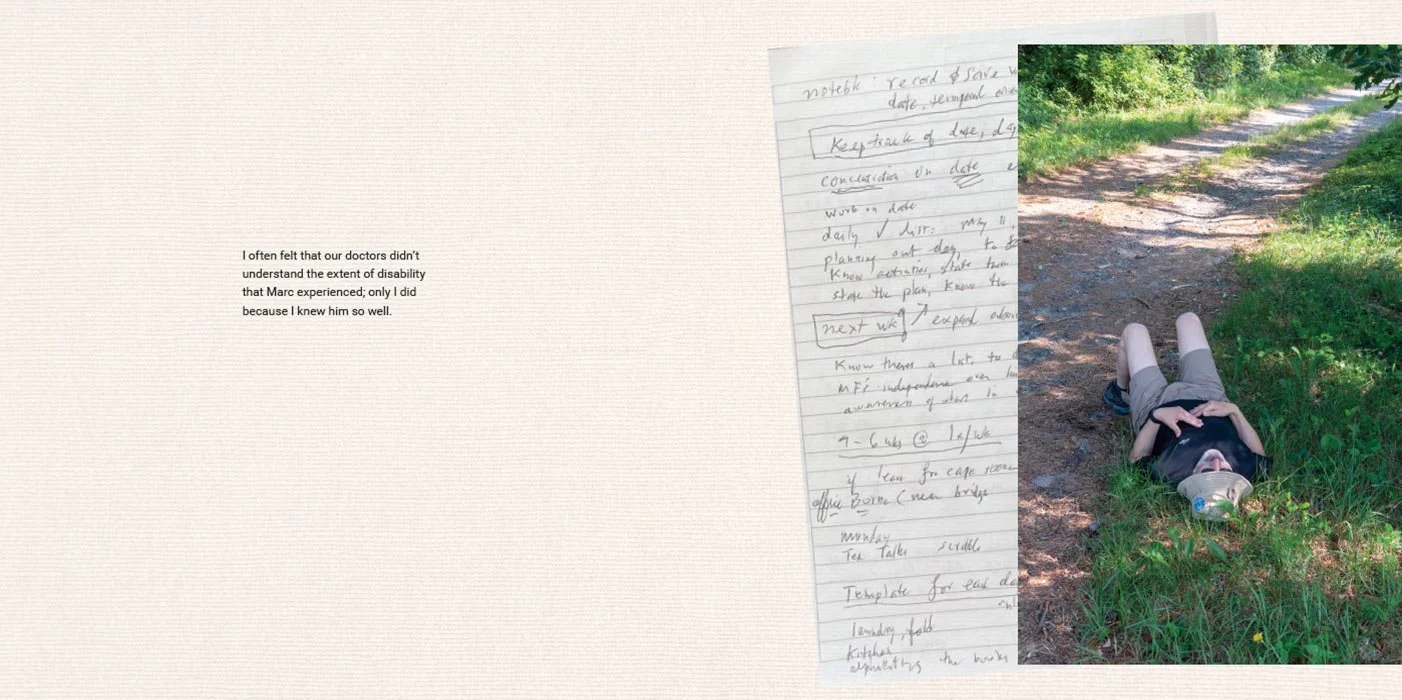 I often felt that our doctors didn’t
understand the extent of disability
that Marc experienced; only I did
because I knew him so well.
notebk: record & save
date, temporal
Keep track of date, day
concentration on date
work on date
daily ✓ list: May 11,
planning out day, to
Know activities, state
state the plan, know the
next wk ↗ expand
Know theres a list, to
MF's independence over
awareness of what
4-6 wks @ 1x/wk
if leav for cape
office Borne (near bridge
monday
Tea Talks
Template for each
laundry, fold
Kitchen
the books